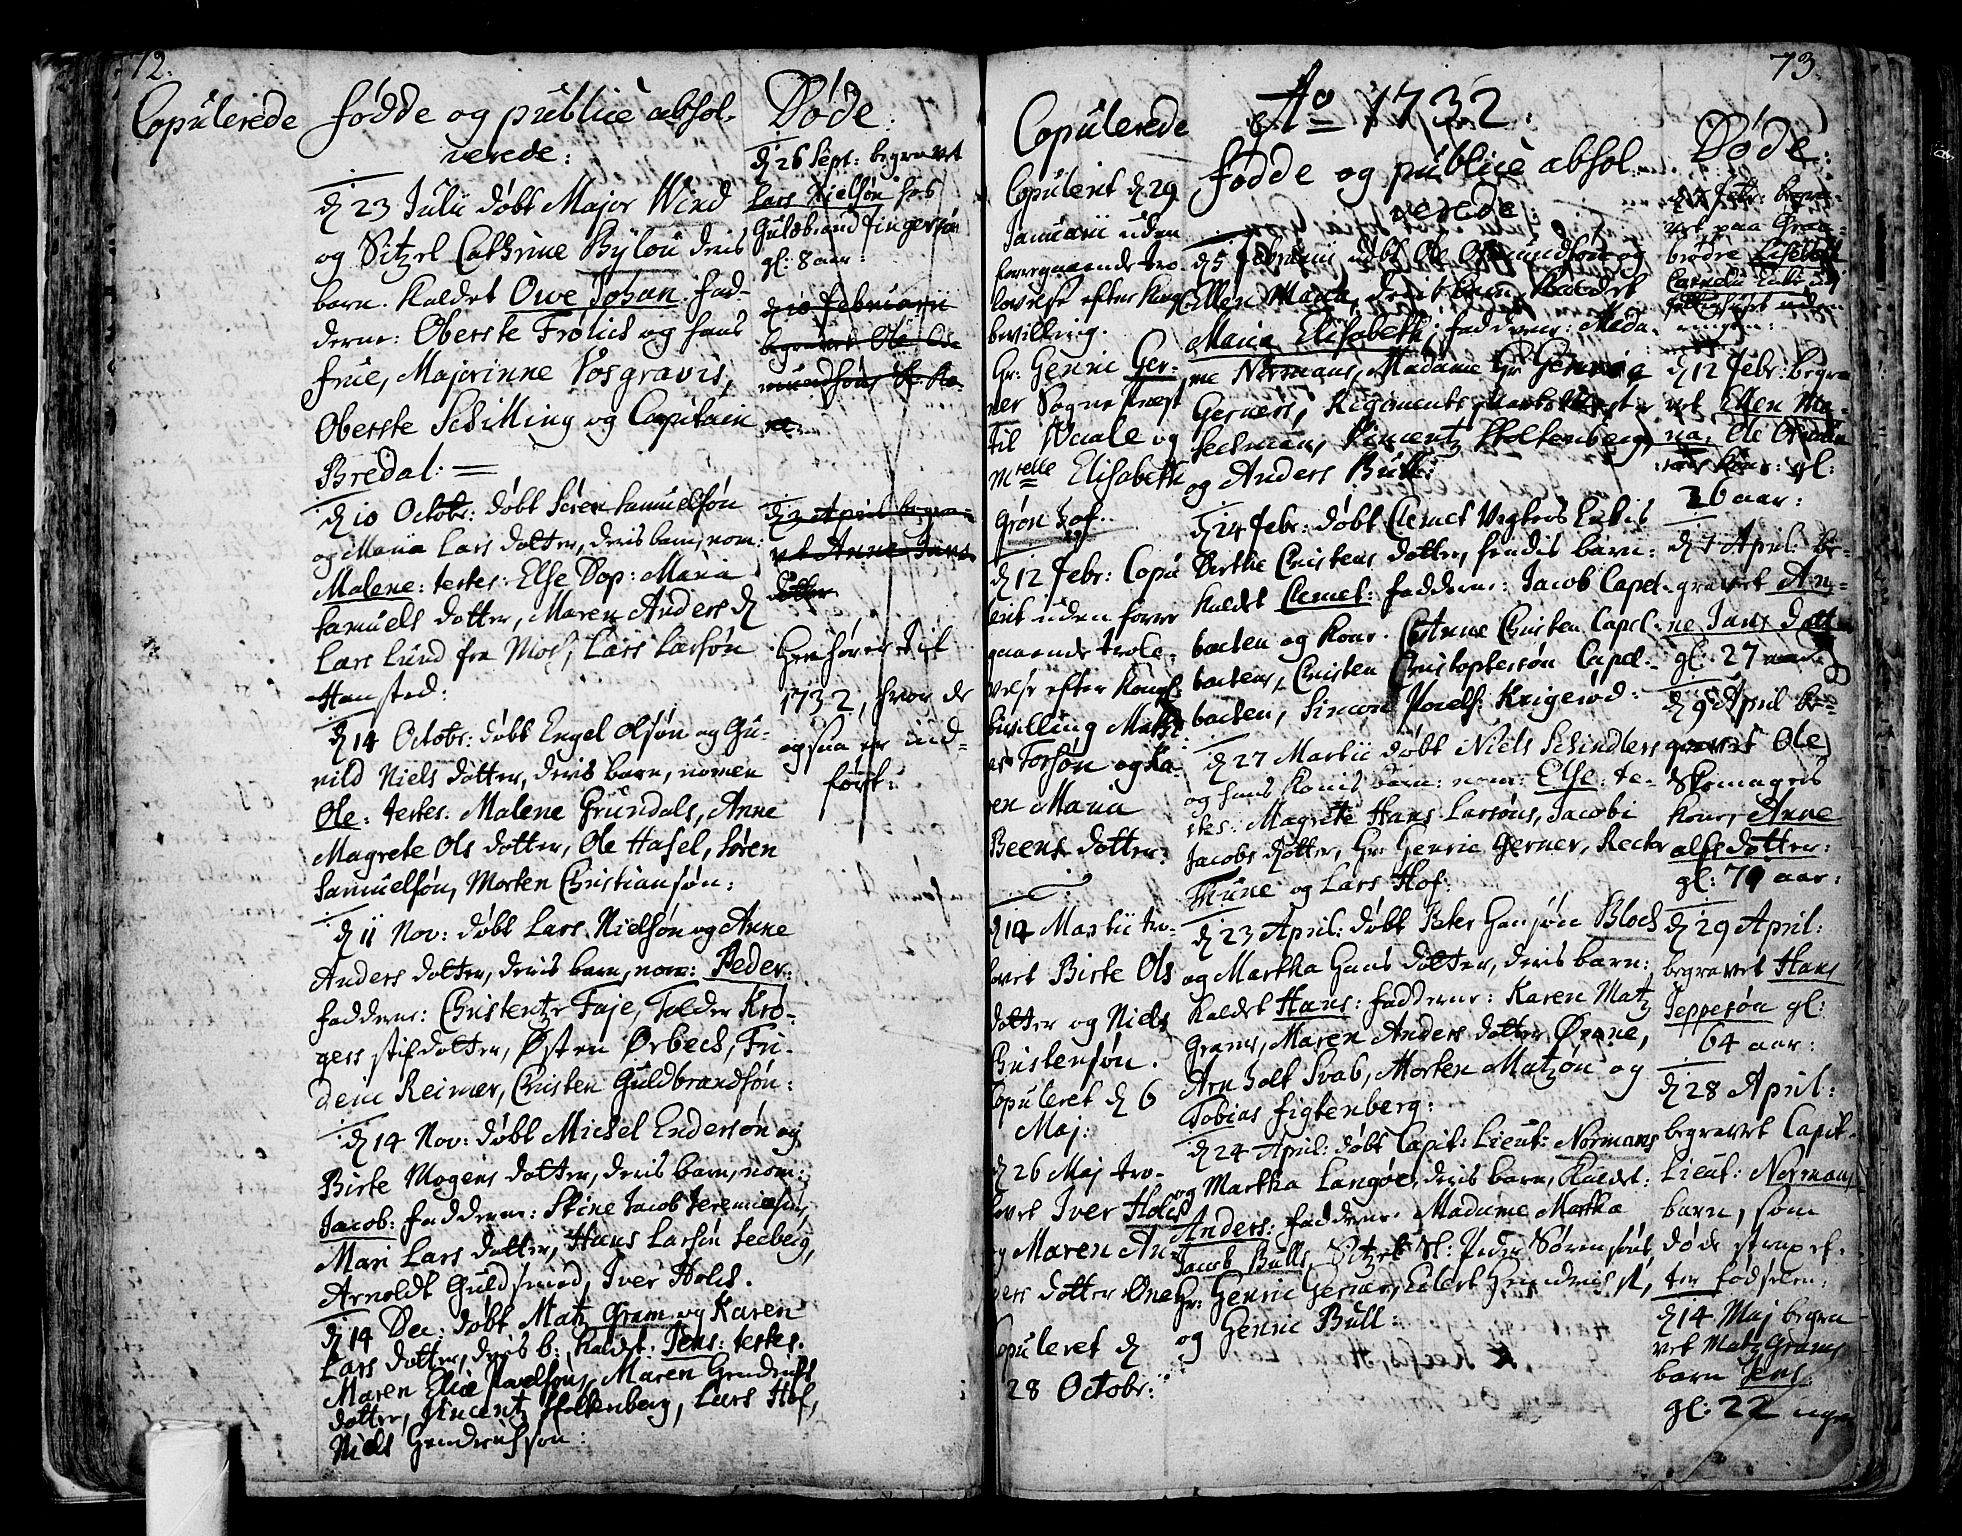 72.
Copulerede
fødde og publicè absol-
verede:
d 23 Julii døbt Major Wind
og Sitzel Cathrine Bÿlou deris
barn. Kaldet Owe Johan. fad-
derne: Oberste Frølich og hans
frue, Majorinne Vosgravis,
Oberste Schilling og Capitain
Bredal:
d 10 Octobr: døbt Sören Samuelsøn
og Maria Lars dotter, deris barn, nom:
Malene: testes: Else Sop: Maria
Samuels dotter, Maren Anders d
Lars Lund fra Mos, Lars Larsøn
Hansted:
d 14 Octobr: døbt Engel Olsøn og Gu-
nild Niels dotter, deris barn, nomen
Ole: testes: Malene Grundals, Anne
Magrete Ols dotter, Ole Hasel, Sören
Samuelsøn, Morten Christiansøn:
d 11 Nov: døbt Lars Nielsøn og Anne
Anders dotter, deris barn, nom: Peder:
fadderne: Christentze Faje, Tolder Krø-
gers stifdotter, Østen Ørbech, Fri-
deric Reimer, Christen Guldbrandsøn:
d 14 Nov: døbt Michel Endersøn og
Birte Mogens dotter, deris barn, nom:
Jacob: fadderne: Stine Jacob Jeremiæsøns,
Mari Lars dotter, Hans Larsøn Seeberg,
Arnoldt Guldsmed, Iver Holch.
d 14 Dec: døbt Matz Gram og Karen
Lars dotter, deris b: kaldet: Jens: testes.
Maren Eliæ Povelsøns, Maren Hendrichs
dotter, Vincentz Stoltenberg, Lars Hof,
Niels Hendrichsson:
Døde:
d 26 Sept: begravet
Lars Nielsøn hos
Guldbrand Jingersøn
gl: 8 aar:
d 10 Februarii
begravet Ole Os-
mundsøns Ko-
ne.
d 3 April begra-
vet Anne Jans
dotter
Henhører til
1732, hvor de
ogsaa er ind-
ført:
73.
Ao 1732:
Copulerede
Copuleret d 29
Januarii uden
foregaaende tro-
lovelse efter Kong
bevilling.
Hr: Henric Ger-
ner Sogne Præst
til Vaale og
Mrelle Elisabeth
Grøn Hof.
d 12 Febr: Copu
leret uden forre
gaaende trolo-
velse efter Kongl:
bevilling
Torsøn og Ka-
ren Maria
Beens dotter:
d 14 Martii tro-
lovet Birte Ols
dotter og Niels
Christensøn.
Copuleret d 6
Maj:
d 26 Maj tro-
lovet Iver Holch
og Maren An-
ders dotter One
Copuleret d
28 Octobr:
fødde og publicè absol-
verede:
d 5 Februarii døbt Ole Osmundsøn og
Ellen Maria, deris barn Kaldet
Maria Elisabeth: fadderne: Mada-
me Normans, Madame Hr Henric
Gerners, Regiments
Seekman, Vincentz Stoltenberg,
og Anders Bull:
d 24 Febr: døbt Clemet Vegters Enkis
Birthe Christens dotter, hendis barn:
kaldet Clemet: fadderne: Jacob Capel-
backen og Kone. Christen Capel-
backens, Christen Christophersøn Capel-
backen, Simon Povels: Krigerød:
d 27 Martii døbt Niels Schindlers
og hans Konis barn: nom: Else: te-
stes: Magrete Hans Larsøns, Jacobi
Jacobs dotter, Hr: Henric Gerner, Rector
Thune og Lars Hof:
d 23 April: døbt Peter Hansøn Bloch
og Martha Hans dotter, deris barn:
kaldet Hans: fadderne: Karen Matz
Grams, Maren Anders dotter Orne,
Arn Holt Svab, Morten Matzøn og
Tobias Figtenberg:
d 24 April: døbt Capit: Lieut: Normans
og Martha Langøe, deris barn, kaldet:
Anders: fadderne: Madame Martha
Jacob Bulls, Sitzel Sl: Peder Sørensøns,
Hr: Henric Gerner, Eilert Hendrichs N,
og Henric Bull:
Døde:
Febr: begra-
vet paa Gran-
brødre Lisebeth
Cornelii
d 12 Febr: begra
vet Ellen Ma-
ria, Ole Osmun
søns Kone: gl:
26 aar:
d 3 April: be-
gravet An-
ne Jans dott
gl: 27 aar.
d 9 April be-
gravet Ole
Skomagers
Kone, Anne
alfs dotter:
gl: 79 aar:
d 29 April:
begravet Hans
Jeppesøn gl:
64 aar:
d 28 April:
begravet Capit-
Lieut: Normans
barn, som
døde strax ef-
ter fødselen:
d 14 Maj begra
vet Matz Grams
barn Jens:
gl: 22 uger